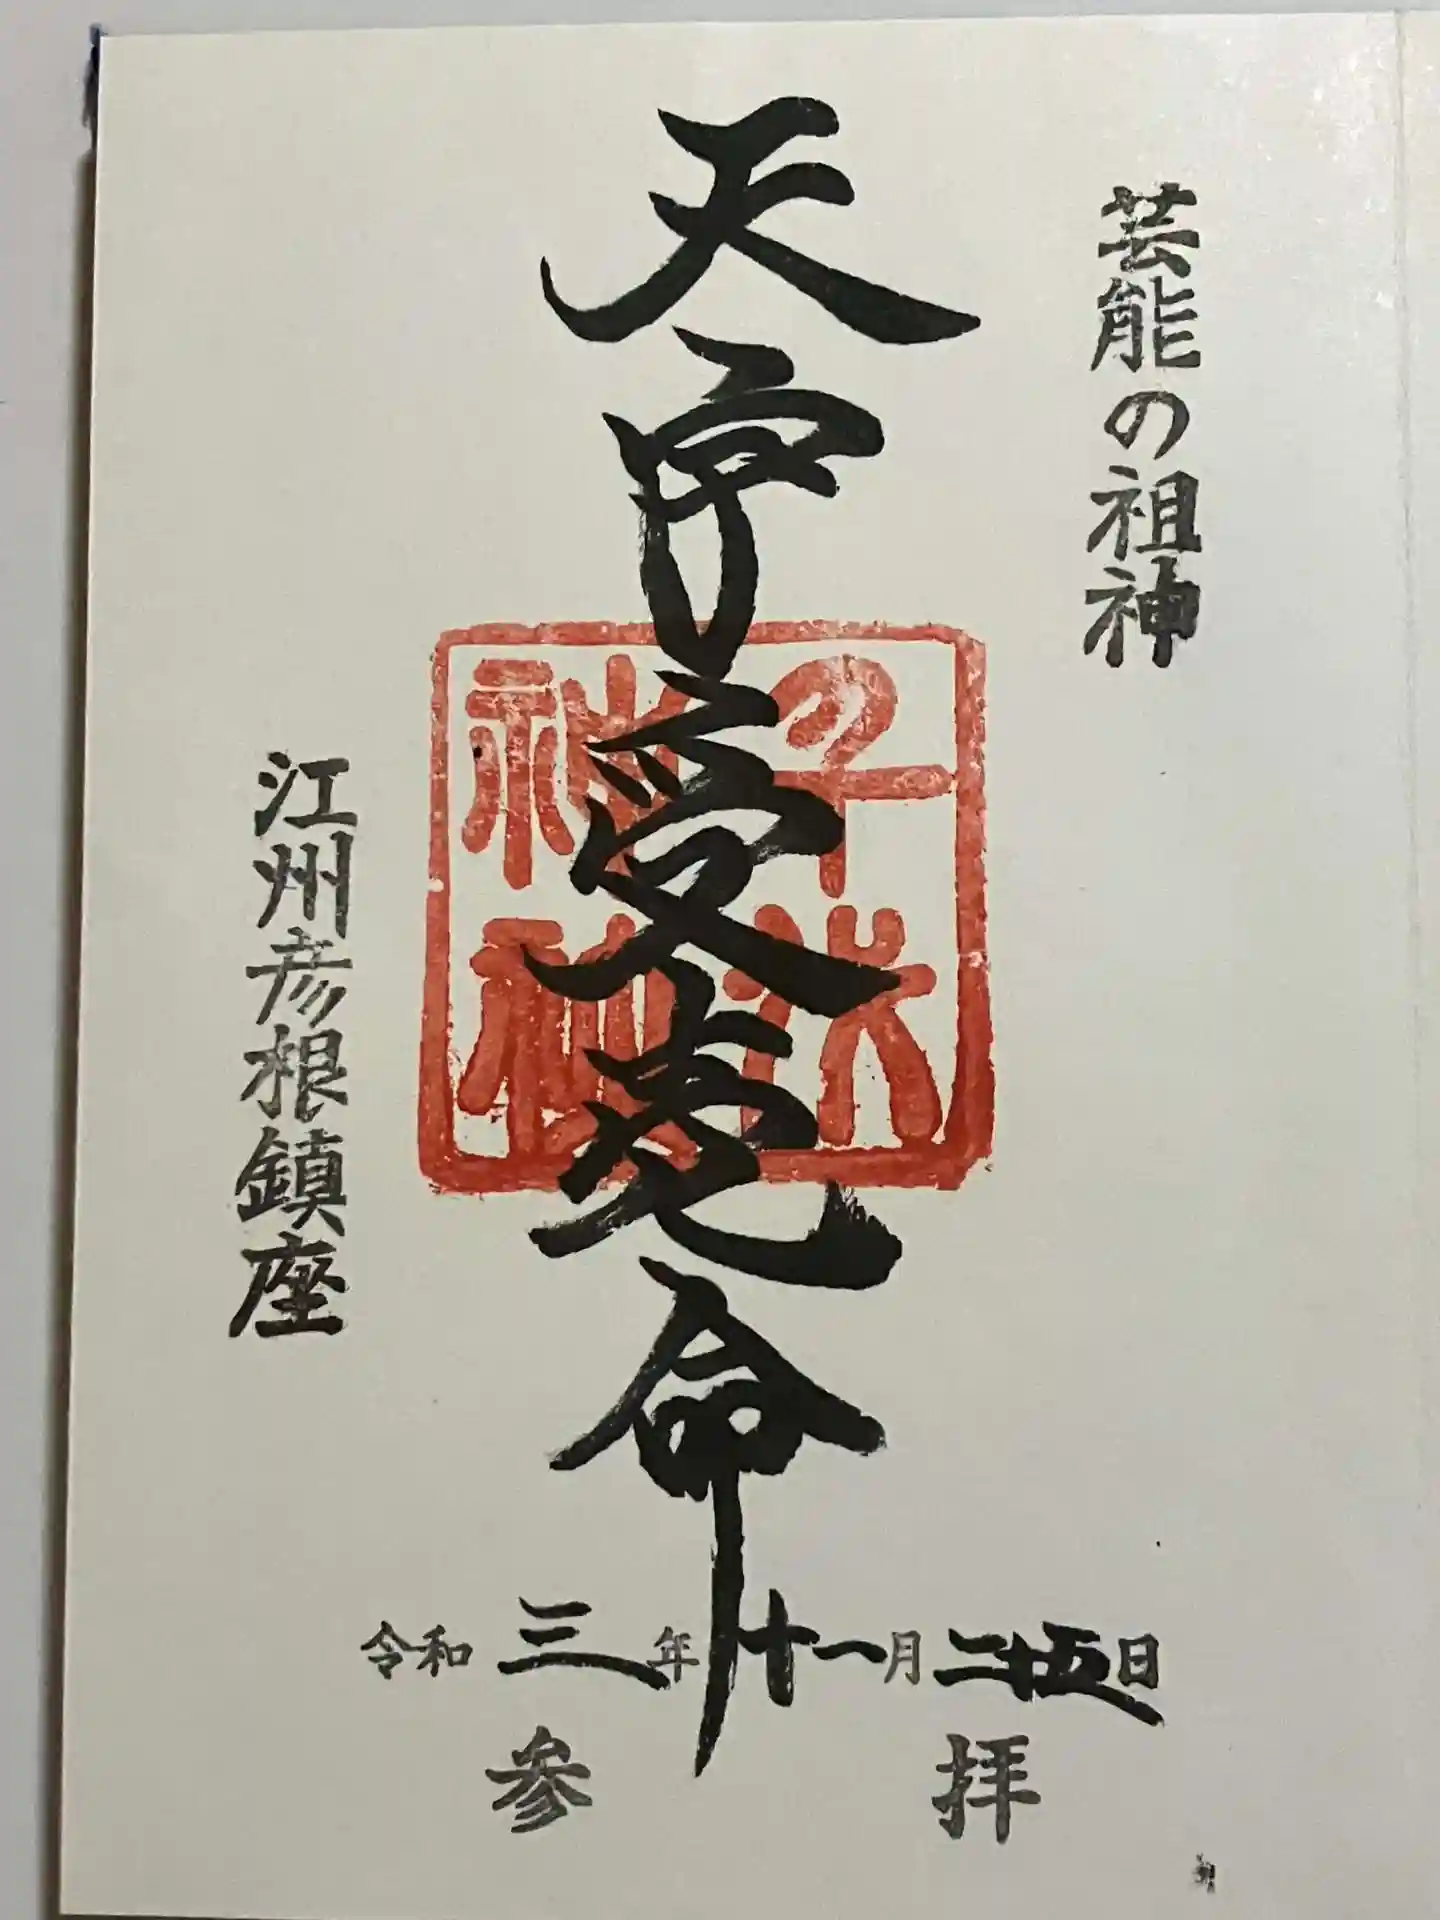 芸能の祖神
天宇受売命
千代
神社
江州彦根鎮座
令和三年十一月二十五日
参拝